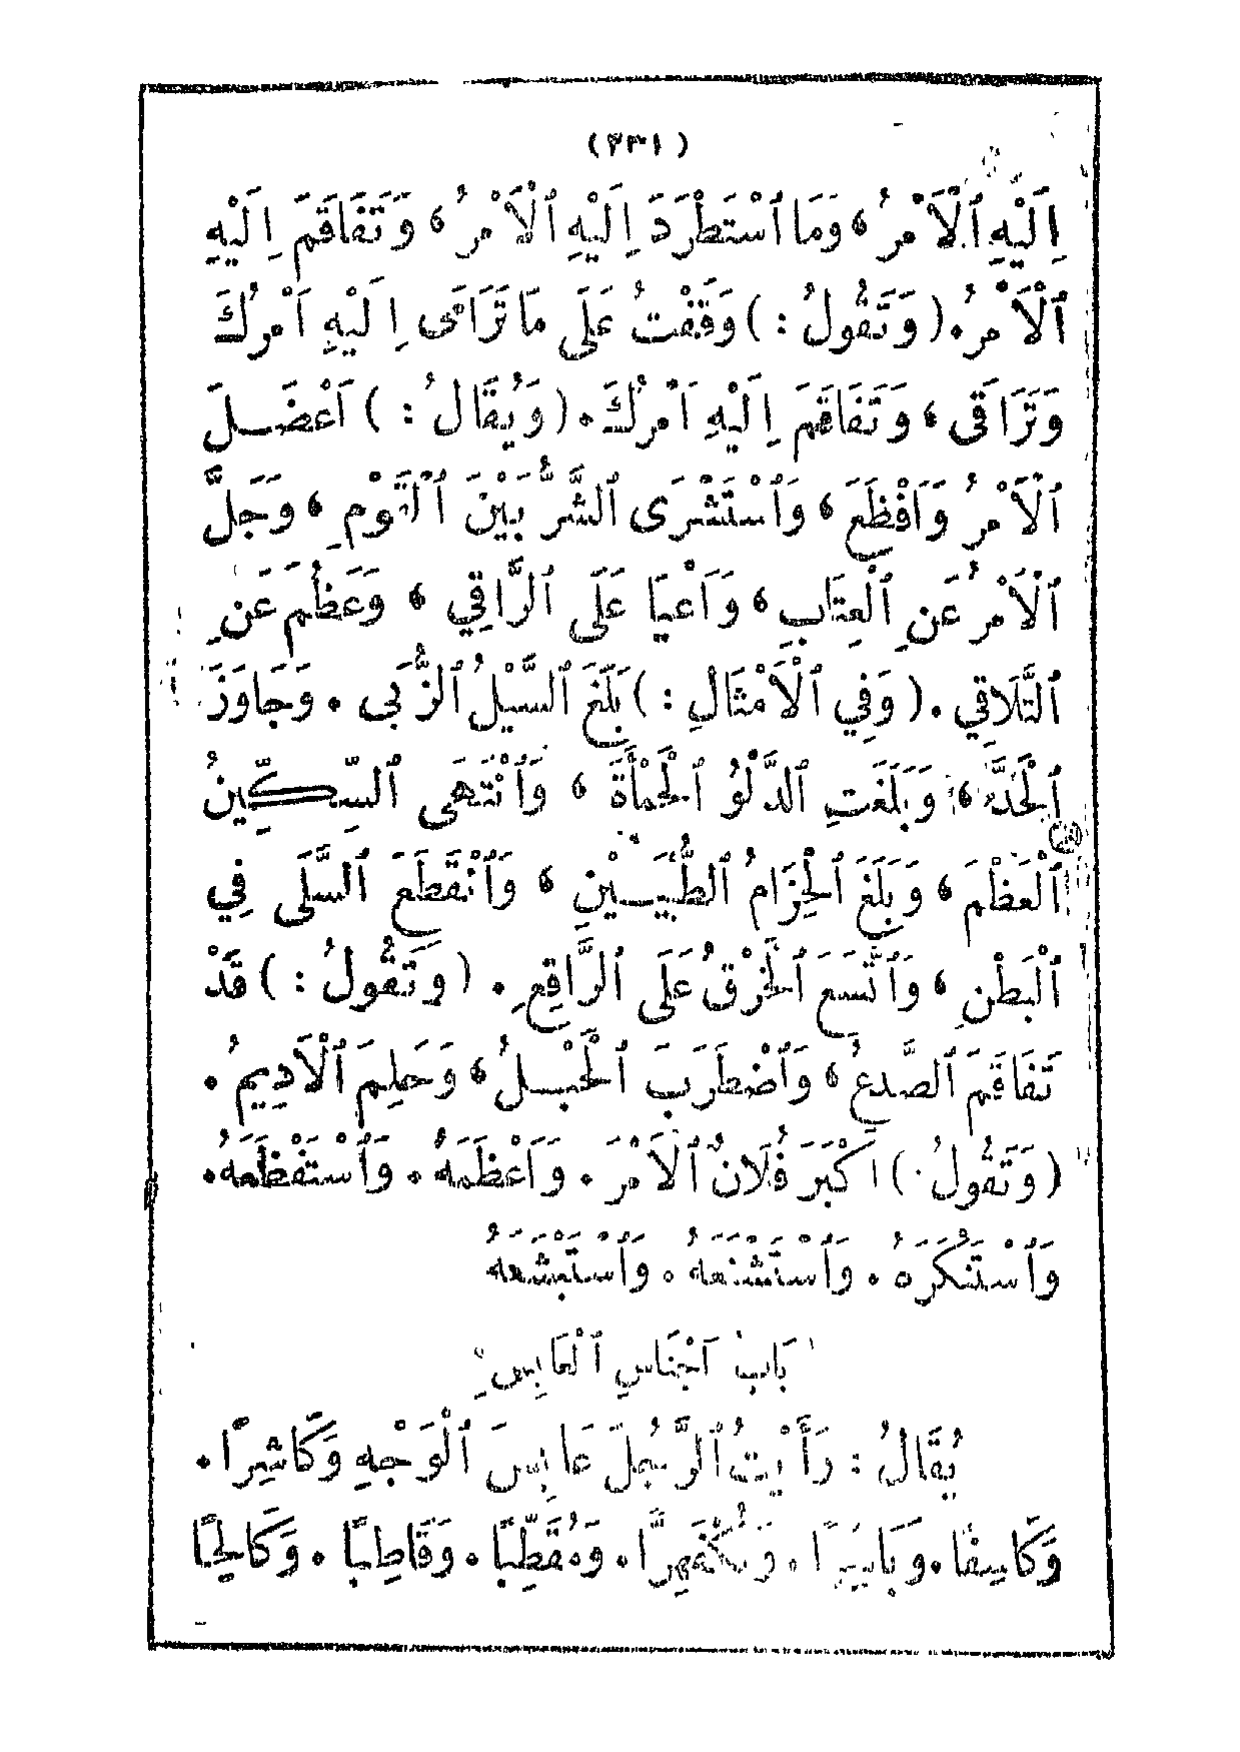 (٢٣١)
إِلَيْهِ ٱلْأَمْرُ، وَمَا ٱسْتَطْرَدَ إِلَيْهِ ٱلْأَمْرُ، وَتَفَاقَمَ إِلَيْهِ
ٱلْأَمْرُ. (وَتَقُولُ:) وَقَفْتُ عَلَى مَا تَرَامَى إِلَيْهِ أَمْرُكَ
وَتَرَاقَى، وَتَفَاقَمَ إِلَيْهِ أَمْرُكَ. (وَيُقَالُ:) أَعْضَلَ
ٱلْأَمْرُ وَأَفْظَعَ، وَٱسْتَشْرَى ٱلشَّرُّ بَيْنَ ٱلْقَوْمِ، وَجَلَّ
ٱلْأَمْرُ عَنِ ٱلْعِتَابِ، وَأَعْيَا عَلَى ٱلرَّاقِي، وَعَظُمَ عَنِ
ٱلتَّلَاقِي. (وَفِي ٱلْأَمْثَالِ:) بَلَغَ ٱلسَّيْلُ ٱلزُّبَى. وَجَاوَزَ
ٱلْحَدَّ، وَبَلَغَتِ ٱلدَّلْوُ ٱلْحَمْأَةَ، وَٱنْتَهَى ٱلسِّكِّينُ
ٱلْعَظْمَ، وَبَلَغَ ٱلْحِزَامُ ٱلطُّبَيَيْنِ، وَٱنْقَطَعَ ٱلسَّلَى فِي
ٱلْبَطْنِ، وَٱتَّسَعَ ٱلْخَرْقُ عَلَى ٱلرَّاقِعِ. (وَتَقُولُ:) قَدْ
تَفَاقَمَ ٱلصَّدْعُ، وَٱضْطَرَبَ ٱلْحَبْلُ، وَحَلِمَ ٱلْأَدِيمُ.
(وَتَقُولُ.) أَكْبَرَ فُلَانٌ ٱلْأَمْرَ. وَأَعْظَمَهُ. وَٱسْتَفْظَعَهُ.
وَٱسْتَنْكَرَهُ. وَٱسْتَشْنَعَهُ. وَٱسْتَبْشَعَهُ
بَابُ أَجْنَاسِ ٱلْعَابِسِ
يُقَالُ: رَأَيْتُ ٱلرَّجُلَ عَابِسَ ٱلْوَجْهِ وَكَاشِرًا.
وَكَاسِفًا. وَبَاسِرًا. وَمُكْفَهِرًّا. وَمُقَطِّبًا. وَقَاطِبًا. وَكَالِحًا